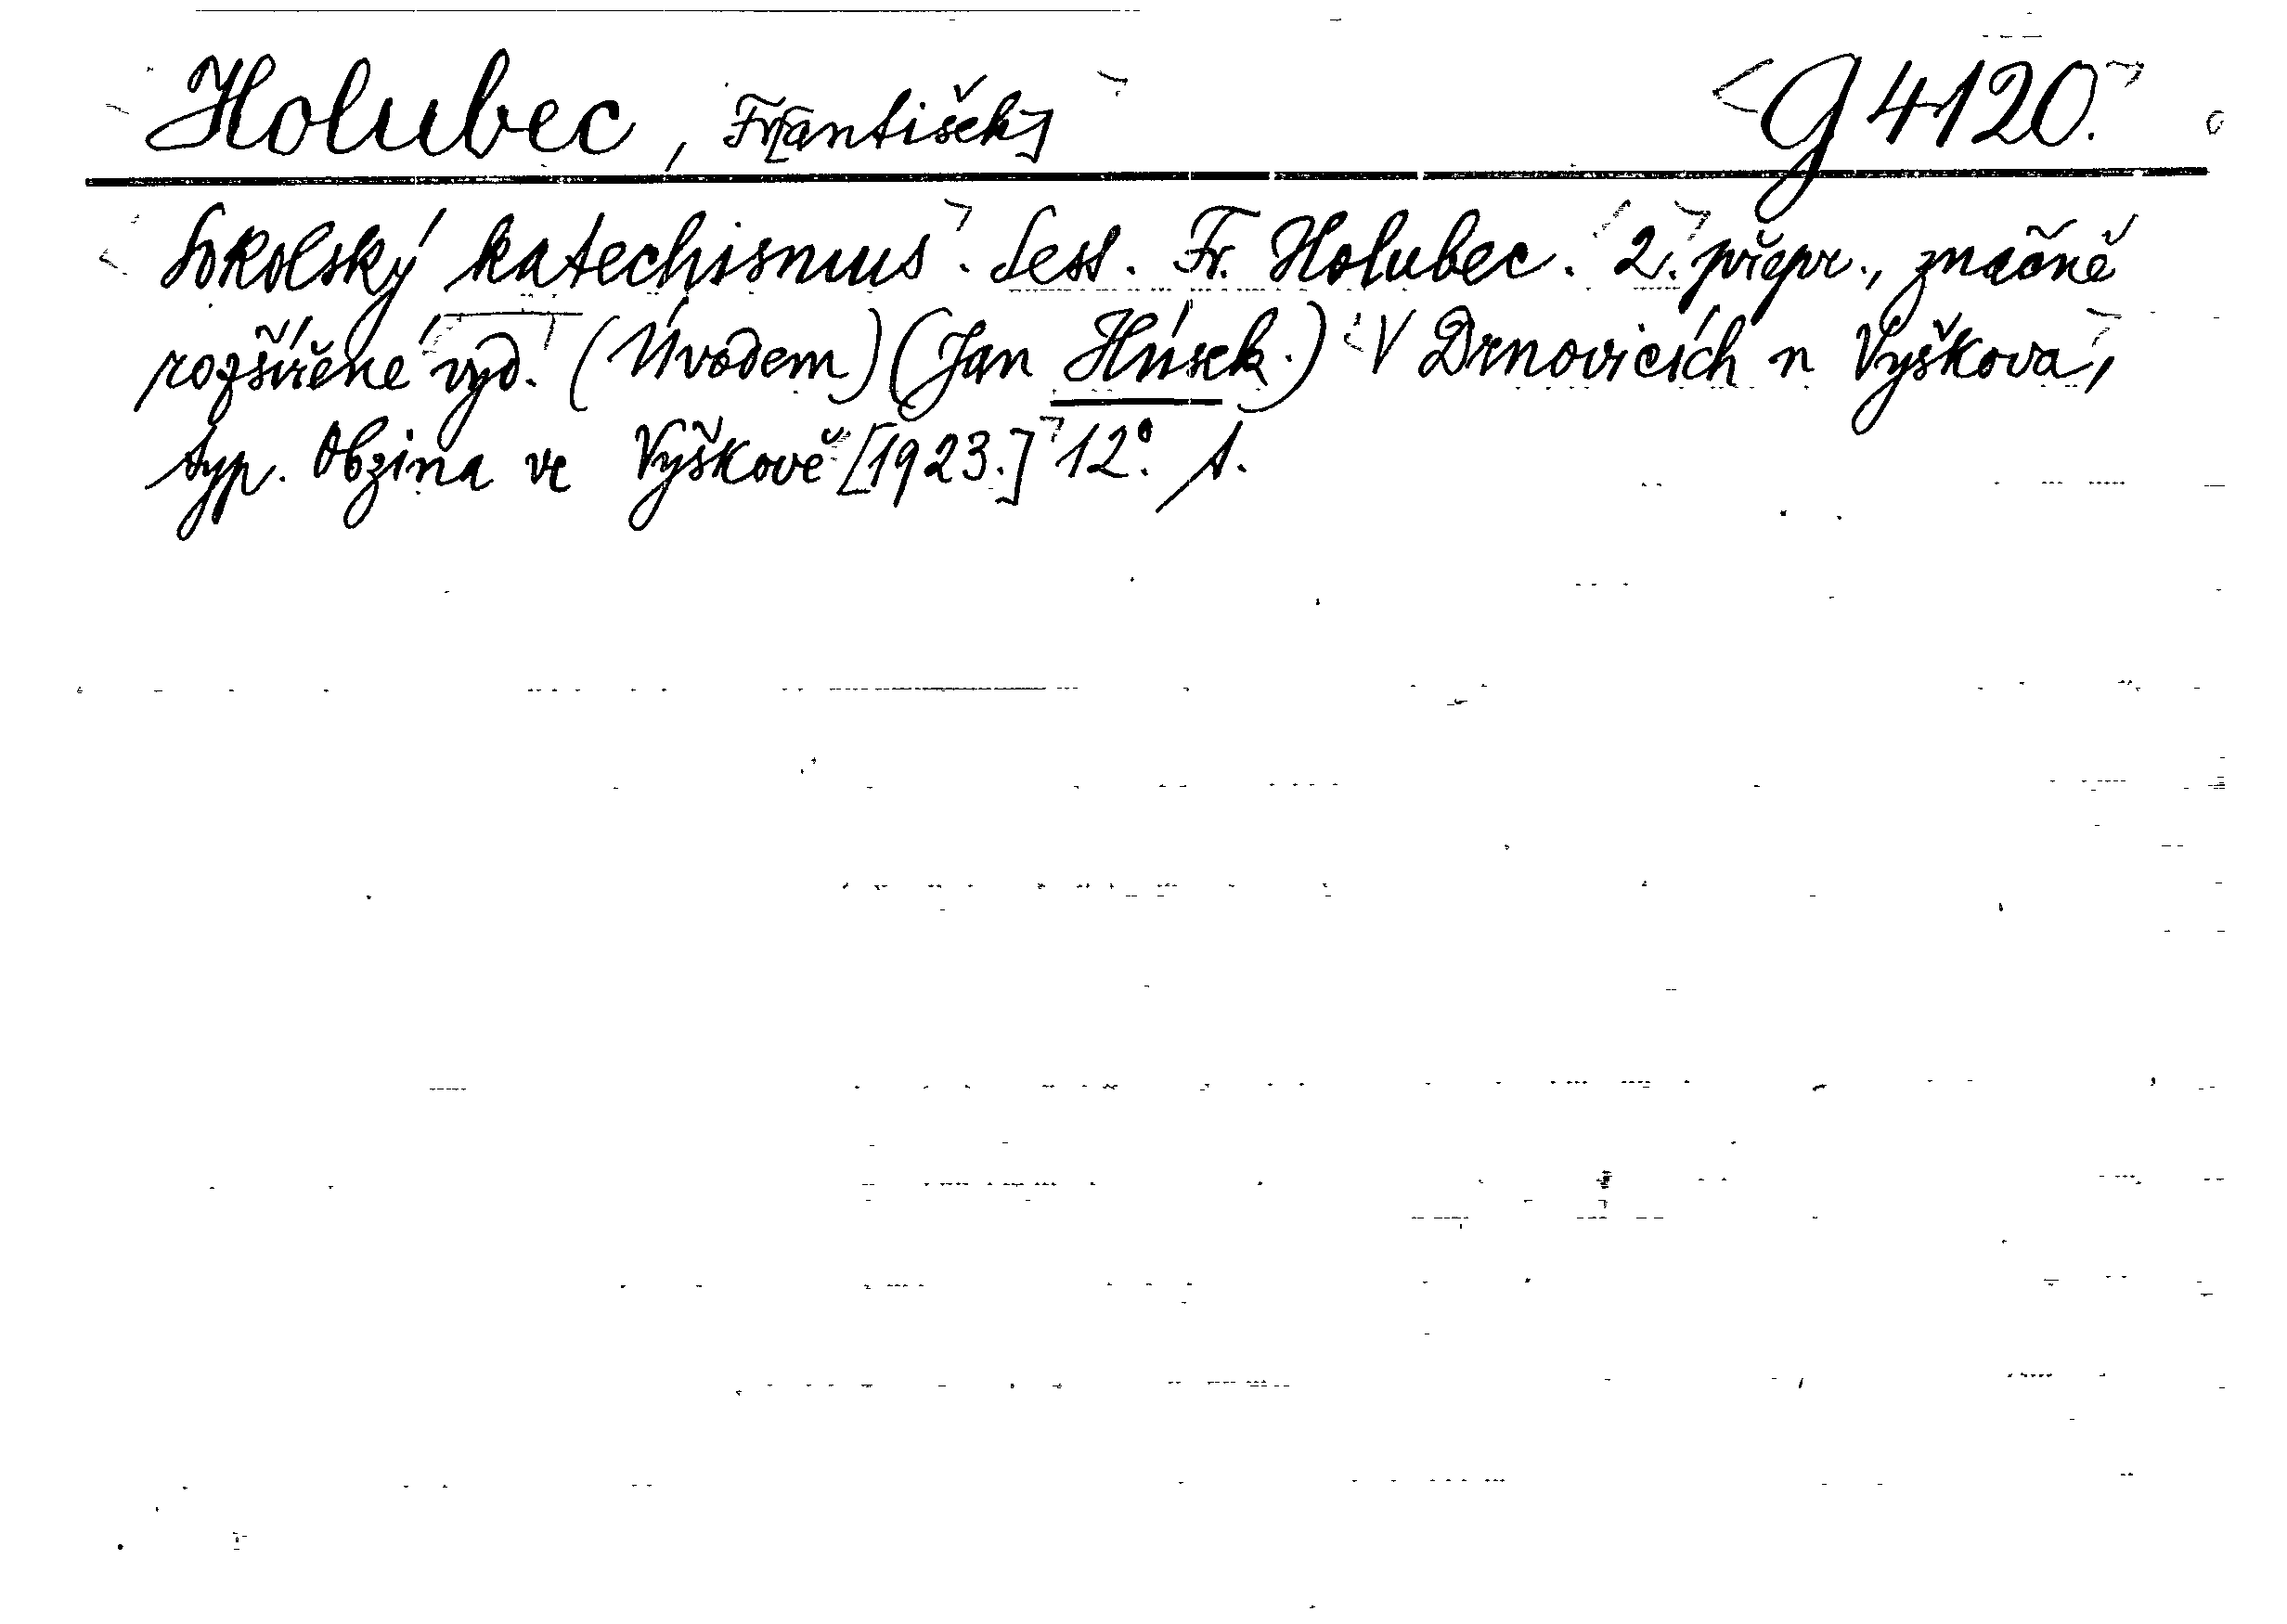 Holubec, Fr[antišek] G 4120.
Sokolský katechismus. Sest. Fr. Holubec. 2. přepr., značně
rozšířené vyd. (Úvodem) (Jan Húsek.) V Drnovicích u Vyškova,
typ. Obzina ve Vyškově [1923.] 12°. s.